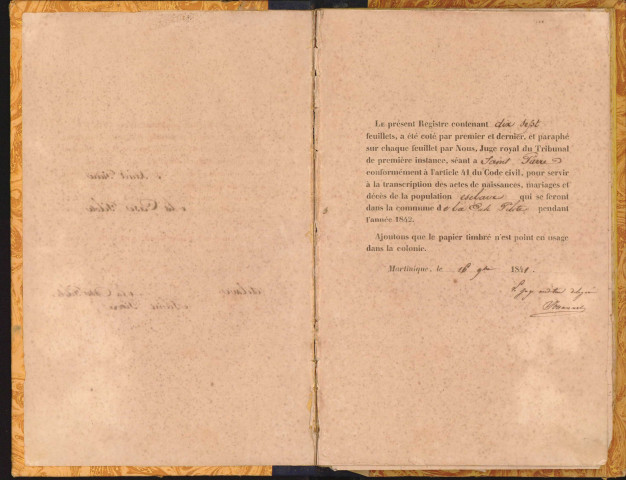 Le présent Registre contenant dix sept
feuillets, a été coté par premier et dernier, et paraphé
sur chaque feuillet par Nous, Juge royal du Tribunal
de première instance, séant à Saint Pierre
conformément à l'article 41 du Code civil, pour servir
à la transcription des actes de naissances, mariages et
décès de la population esclave qui se feront
dans la commune de La pendant
l'année 1842.
Ajoutons que le papier timbré n'est point en usage
dans la colonie.
Martinique, le 16 9bre 1841.
Le juge